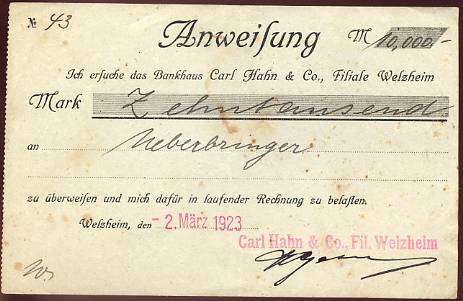 № 43
Anweisung M 10,000.-
Ich ersuche das Bankhaus Carl Hahn & Co., Filiale Welzheim
Mark Zehntausend
an Ueberbringer
zu überweisen und mich dafür in laufender Rechnung zu belasten.
Welzheim, den - 2. März 1923
Carl Hahn & Co., Fil. Welzheim